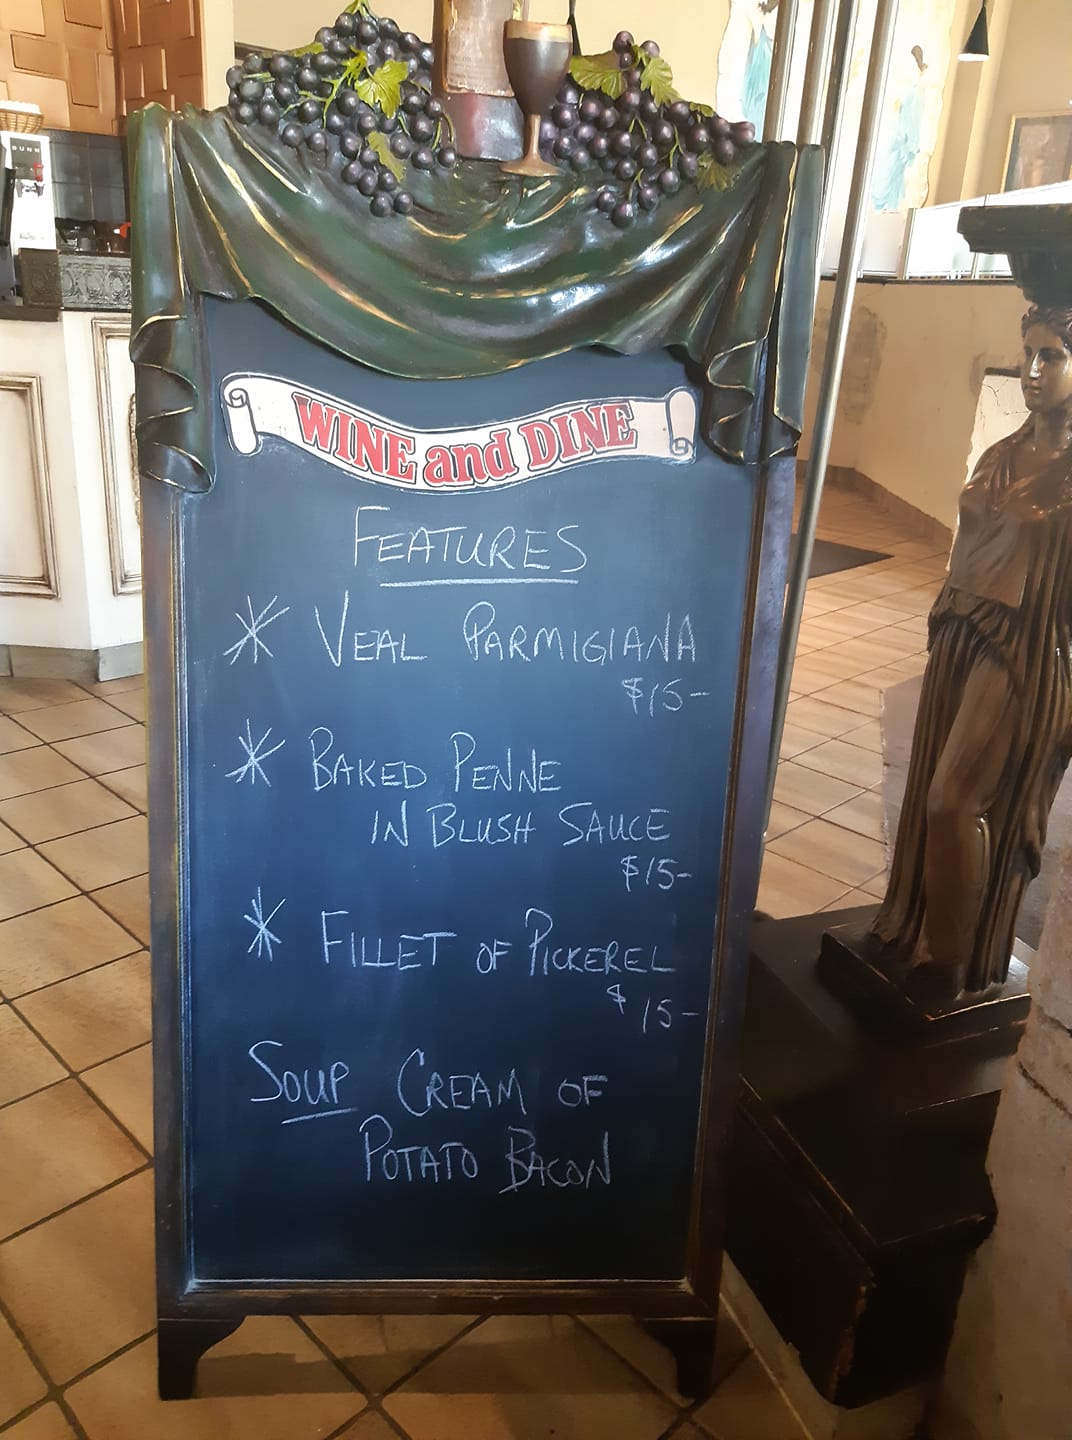 BUNN
WINE and DINE
FEATURES
* VEAL PARMIGIANA
$15-
* BAKED PENNE
IN BLUSH SAUCE
$15-
* FILLET OF PICKEREL
$15-
SOUP CREAM OF
POTATO BACON